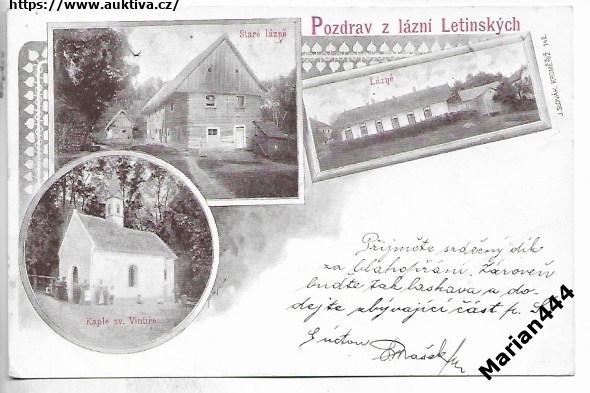 https://www.auktiva.cz/
Pozdrav z lázní Letinských
Staré lázně
Lázně
J. SLOVÁK, KROMĚŘÍŽ 142.
Kaple sv. Vintíře
Přijměte srdečný dík
za blahopřání. Zároveň
buďte tak laskava a do-
dejte zbývající část p.
S úctou
Mašek
Marian444